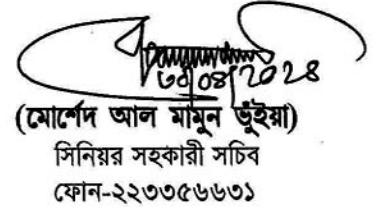 ৩০/০৪/২০২৪
(মোর্শেদ আল মামুন ভূঁইয়া)
সিনিয়র সহকারী সচিব
ফোন-২২৩৩৫৬৬৩১